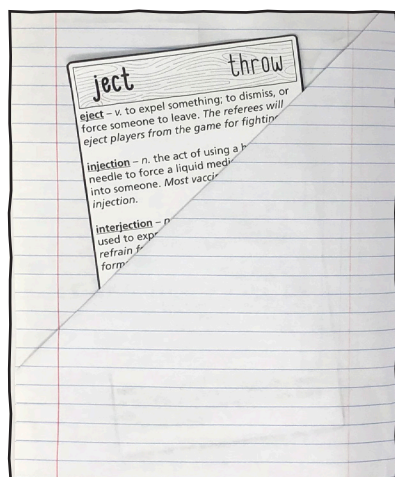 ject throw
eject – v. to expel something; to dismiss, or
force someone to leave. The referees will
eject players from the game for fighting
injection – n. the act of using a
needle to force a liquid
into someone. Most
injection.
interjection –
used to
refrain